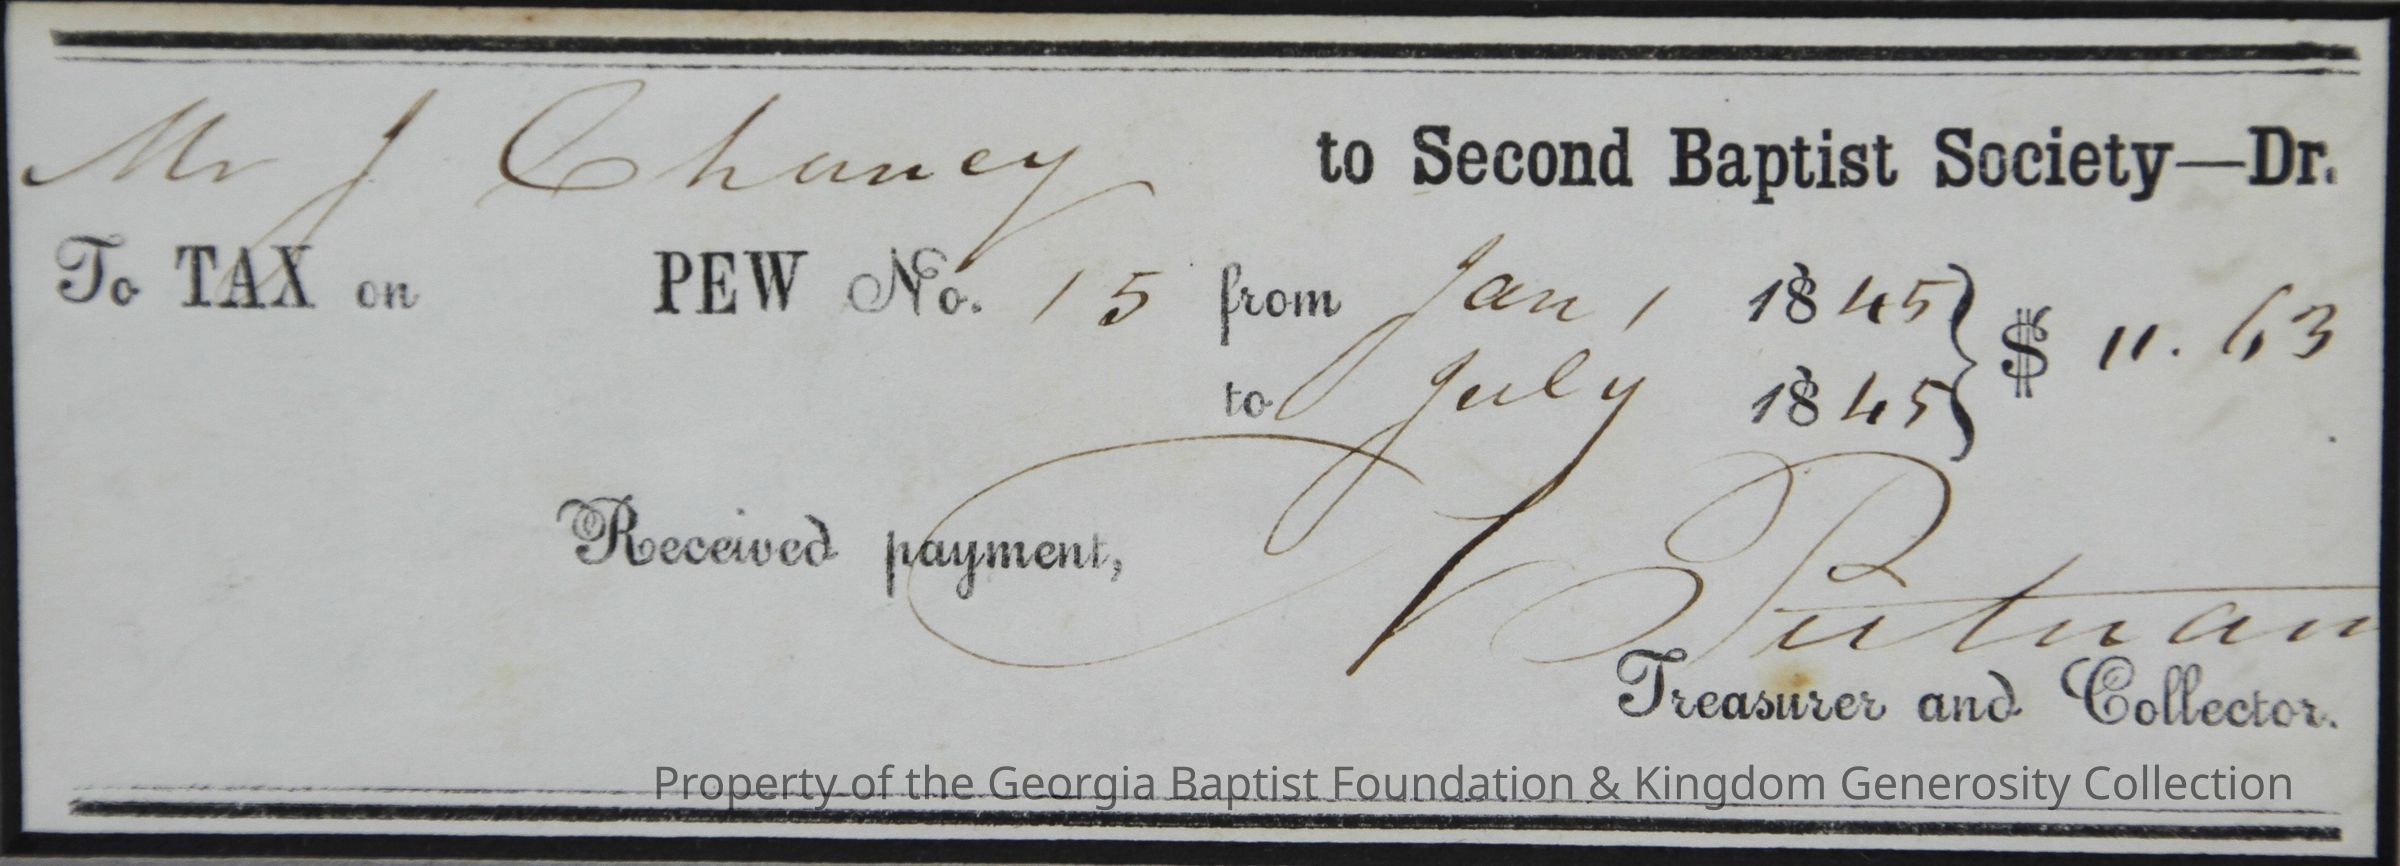 Mr J Chaney to Second Baptist Society—Dr.
To TAX on PEW No. 15 from Jan 1 1845 } $ 11.63
to July 1845
Received payment,
Putnam
Treasurer and Collector.
Property of the Georgia Baptist Foundation & Kingdom Generosity Collection